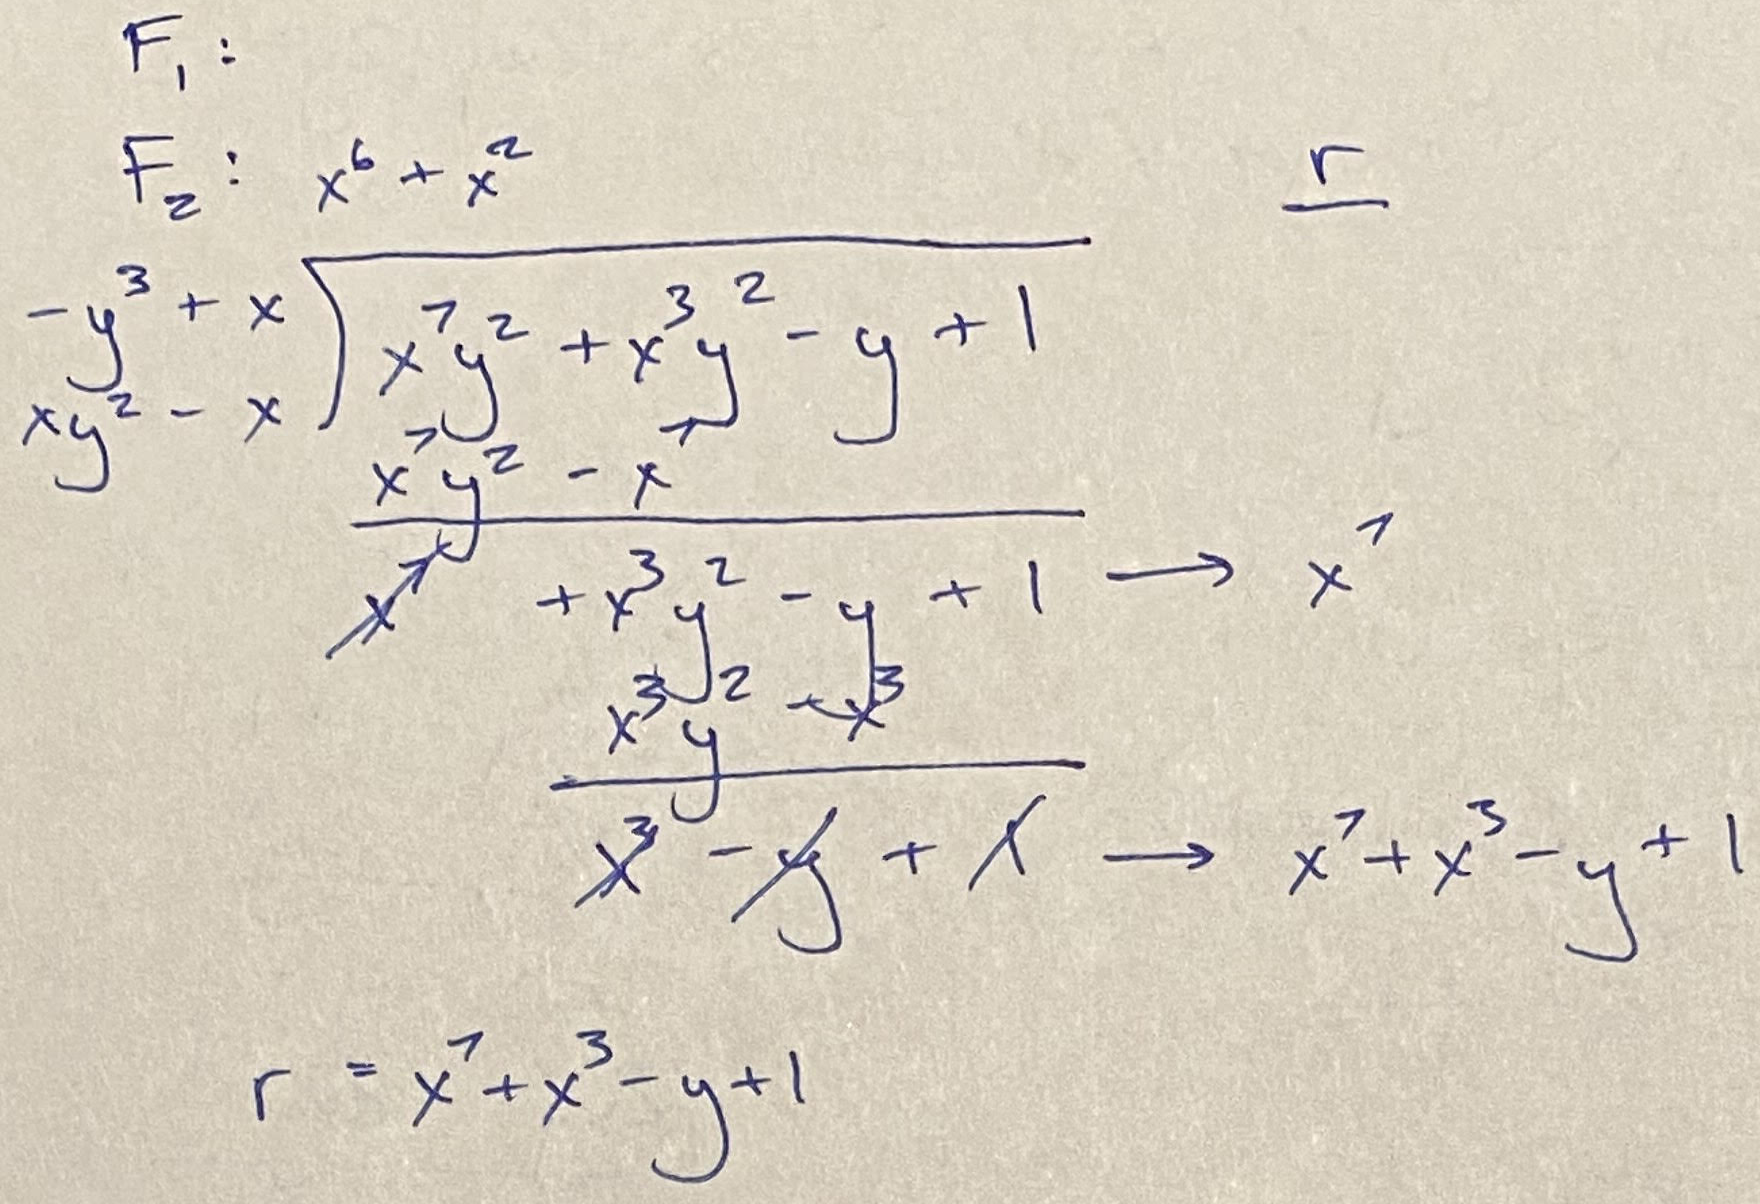 F₁ :
F₂ : x⁶ + x²
r
-y³ + x
xy² - x
x⁷y² + x³y² - y + 1
x⁷y² - x⁷
x⁷ + x³y² - y + 1 → x⁷
x³y² - x³
x³ - y + 1 → x⁷ + x³ - y + 1
r = x⁷ + x³ - y + 1